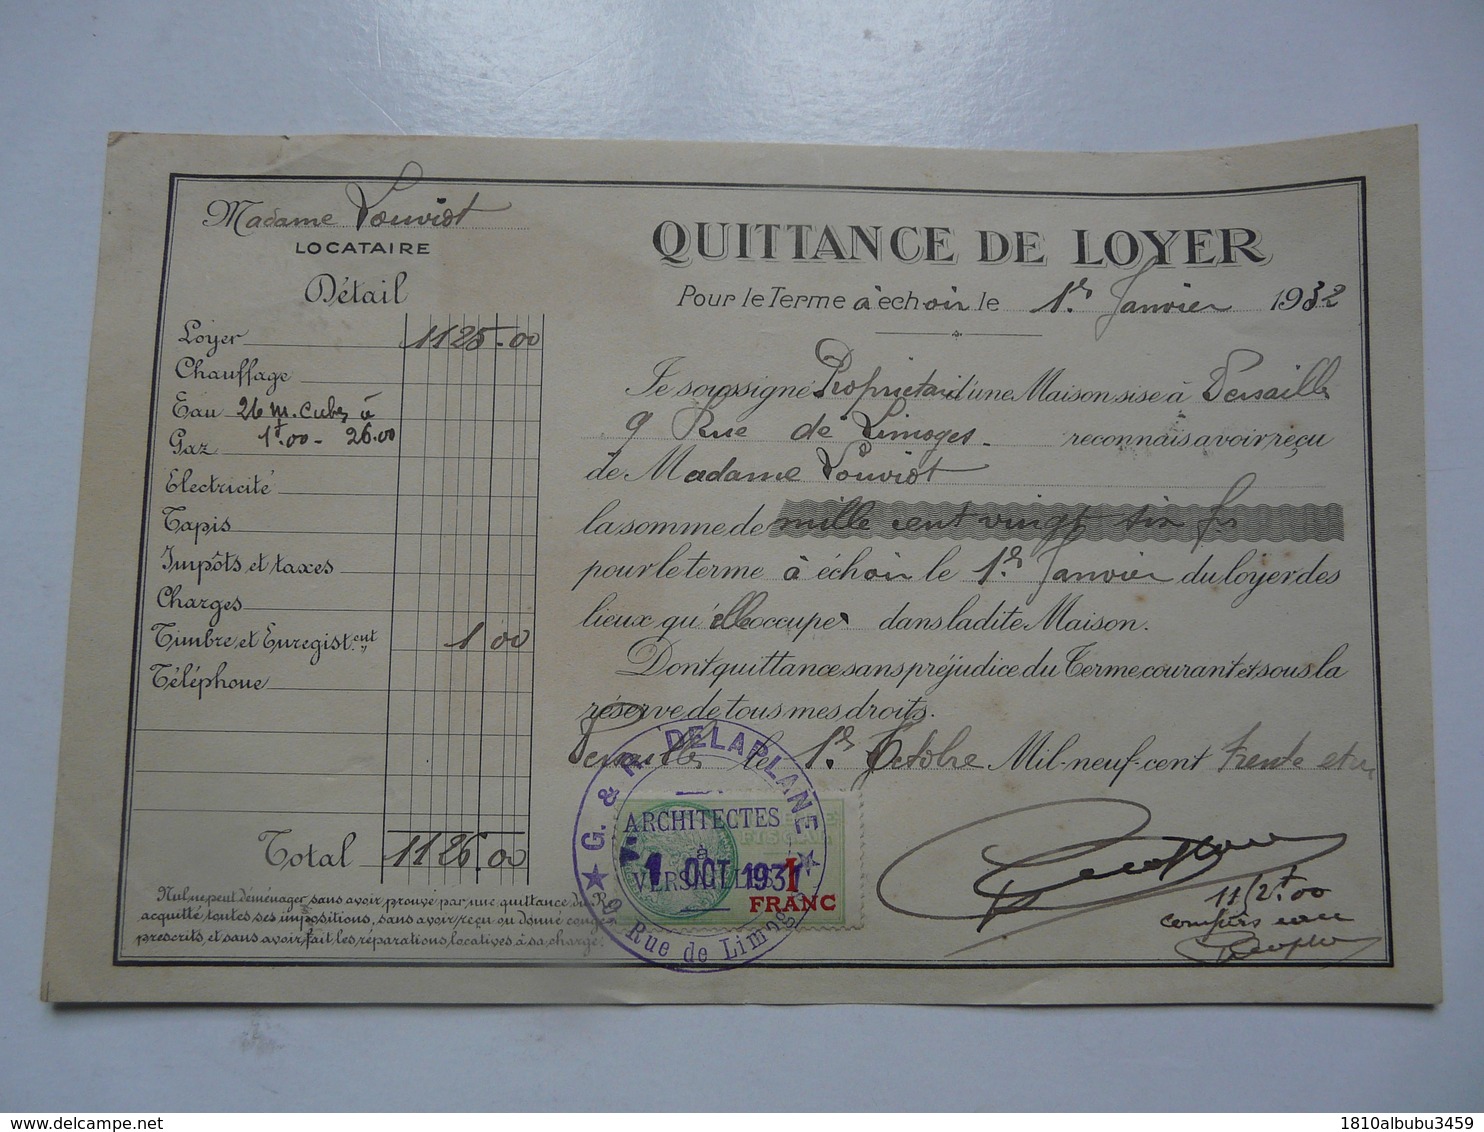 Madame Louviot
LOCATAIRE
Détail
Loyer 1125.00
Chauffage
Eau 26 m. cubes à
1f.00 - 26.00
Gaz
Electricité
Tapis
Impôts et taxes
Charges
Timbre et Enregist.ent 1 00
Téléphone
Total 1126.00
Nul ne peut déménager sans avoir prouvé par une quittance du
acquitté toutes ses impositions, sans avoir reçu ou donné congé
prescrits, et sans avoir fait les réparations locatives à sa charge.
QUITTANCE DE LOYER
Pour le Terme à échoir le 1er Janvier 1932
Je soussigné Propriétaire d'une Maison sise à Versailles
9 Rue de Limoges - reconnais avoir reçu
de Madame Louviot
la somme de mille cent vingt six frs
pour le terme à échoir le 1er Janvier du loyer des
lieux qu'elle occupe dans ladite Maison.
Dont quittance sans préjudice du Terme courant et sous la
réserve de tous mes droits.
Versailles le 1er Octobre Mil-neuf-cent trente et un
G. & R. DELAPLANE
ARCHITECTES
à
1 OCT 1931
VERSAILLES
9 Rue de Limoges
1
FRANC
11/2f.00
compris eau
1810albubu3459